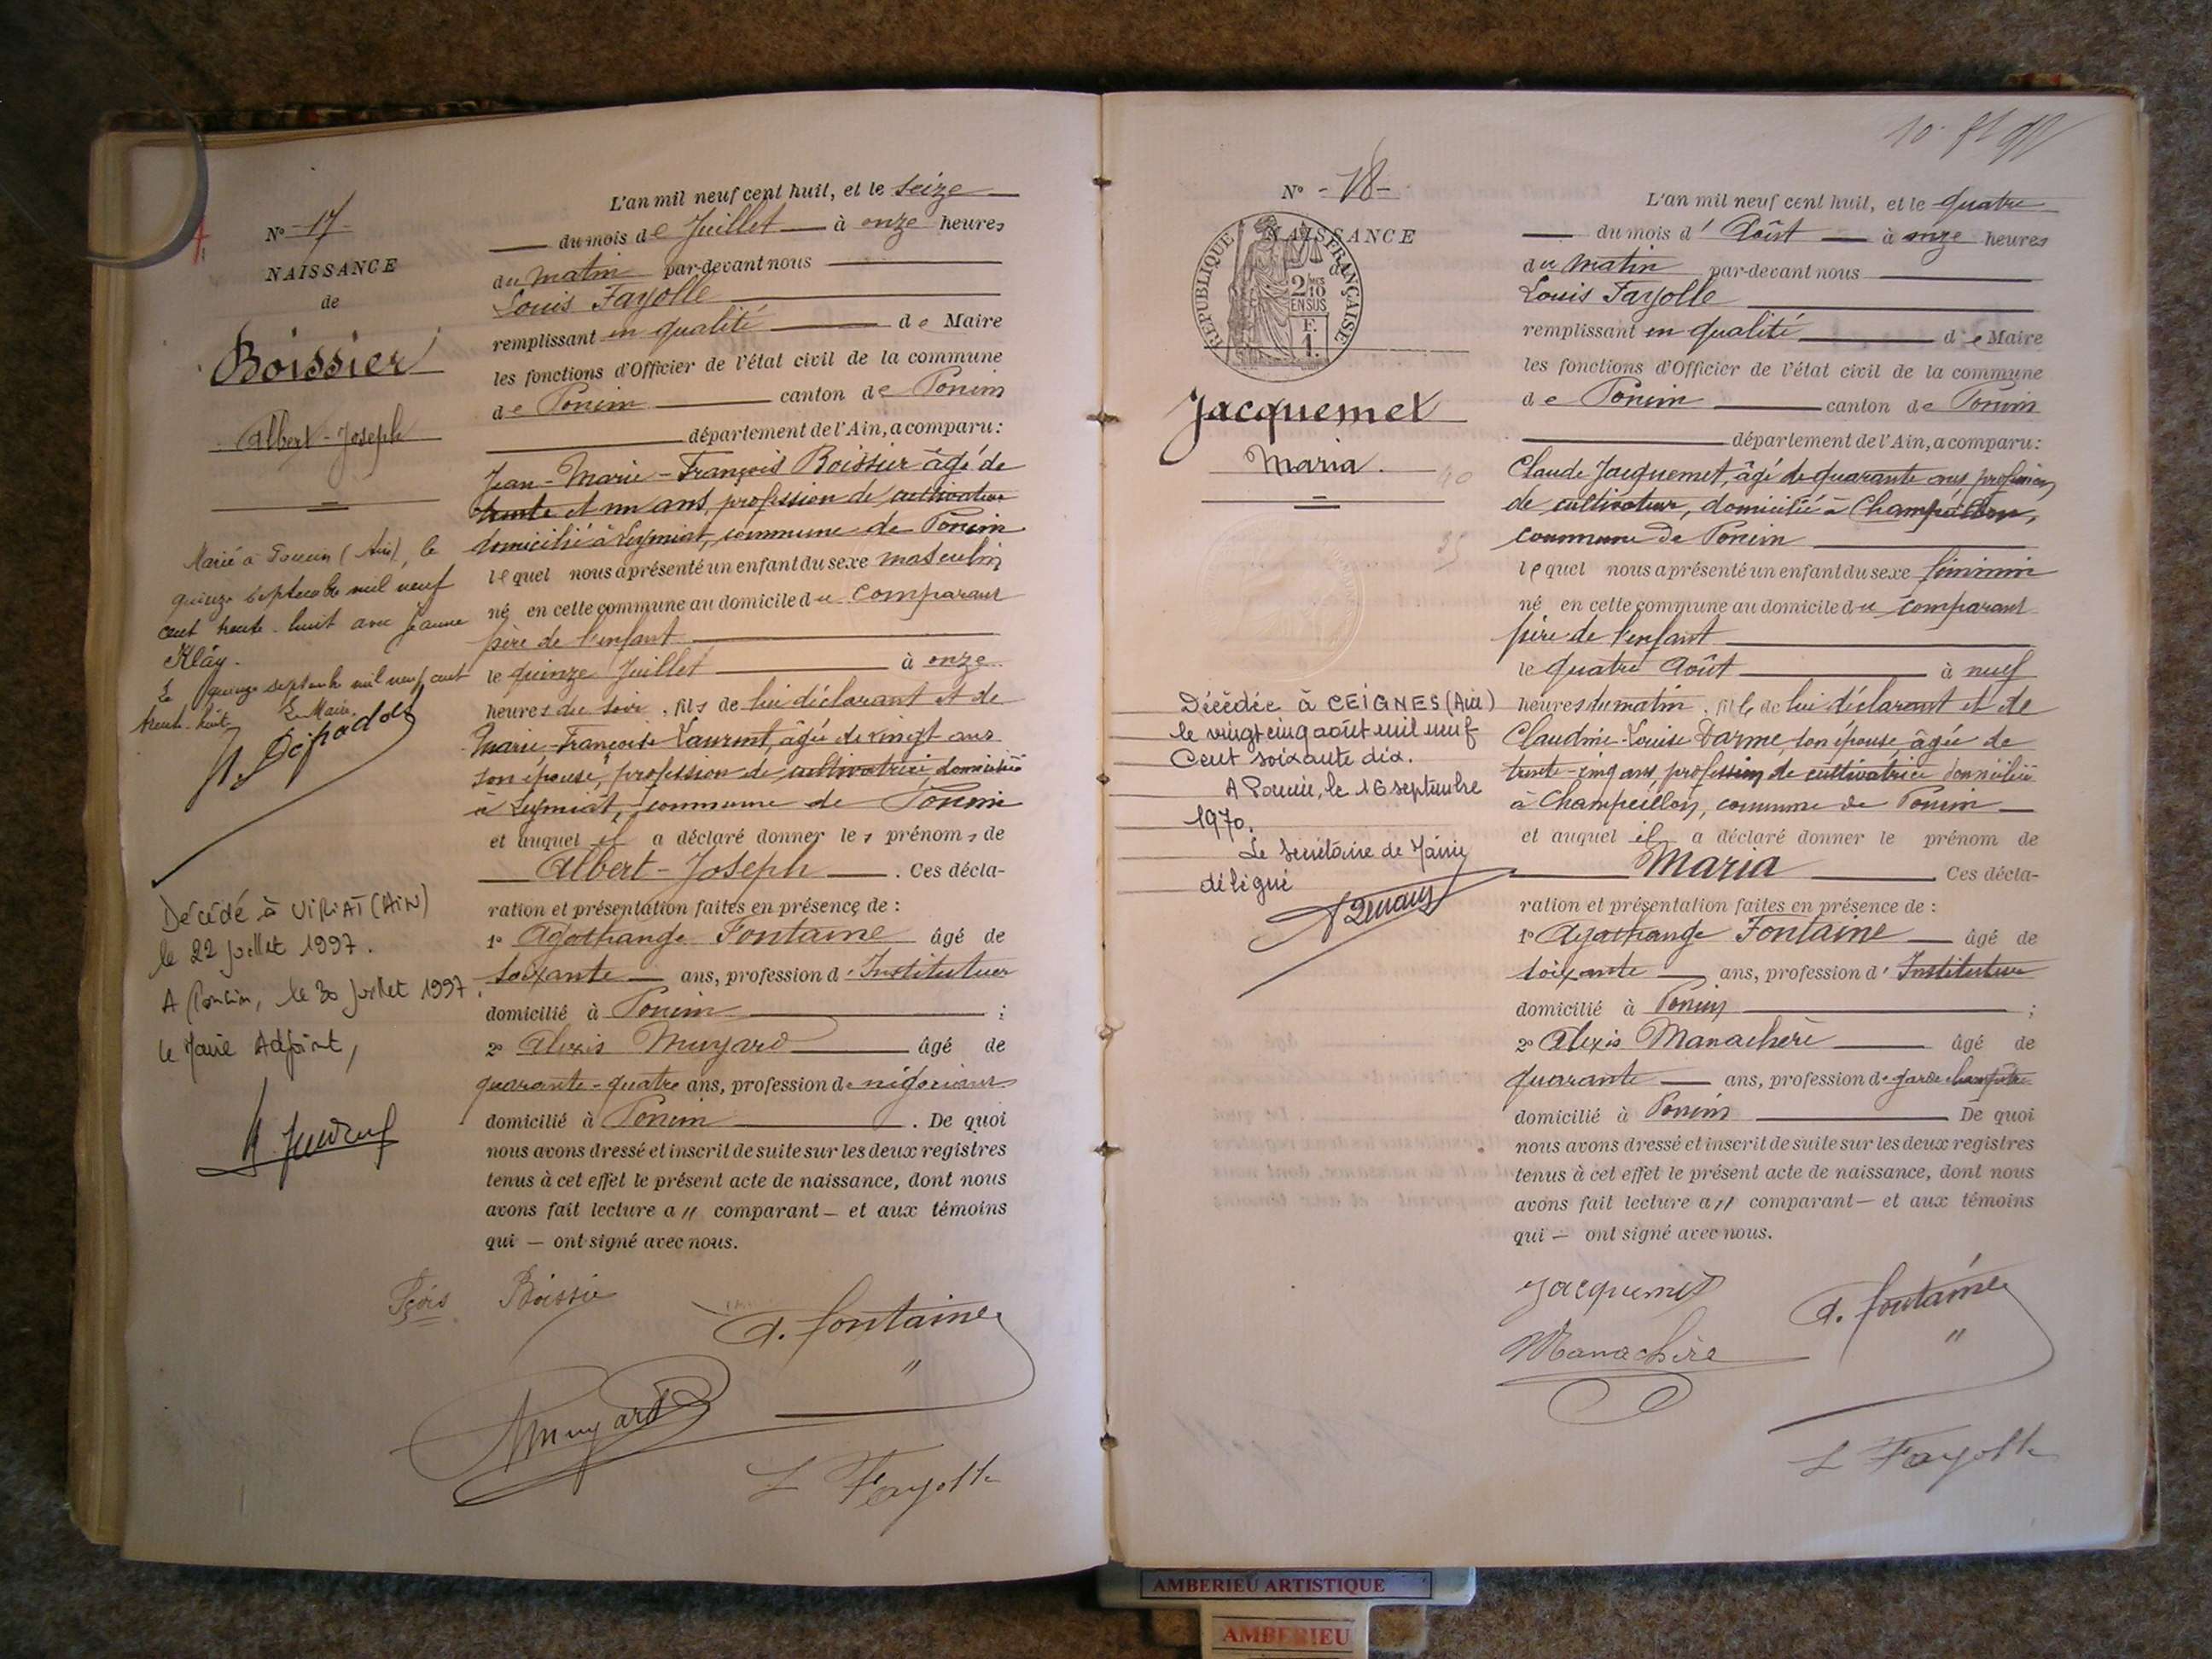 N° 17
NAISSANCE
de
Boissier
Albert-Joseph
Marié à Poncin (Ain), le
quinze septembre mil neuf
cent trente-huit avec Jeanne
Kläy.
Le quinze septembre mil neuf cent
trente-huit Le Maire,
Décédé à VIRIAT (AIN)
le 22 juillet 1997.
A Poncin, le 30 juillet 1997.
le Maire Adjoint,
L'an mil neuf cent huit, et le seize
du mois de Juillet à onze heures
du matin par-devant nous
Louis Fayolle
remplissant en qualité de Maire
les fonctions d'Officier de l'état civil de la commune
de Poncin canton de Poncin
département de l'Ain, a comparu:
Jean-Marie-François Boissier âgé de
trente et un ans, profession de cultivateur
domicilié à Leymiat, commune de Poncin
lequel nous a présenté un enfant du sexe masculin
né en cette commune au domicile du comparant
père de l'enfant
le quinze Juillet à onze
heures du soir, fils de lui déclarant et de
Marie-Françoise Laurent, âgée de vingt ans
son épouse, profession de cultivatrice, domiciliée
à Leymiat, commune de Poncin
et auquel il a déclaré donner les prénoms de
Albert-Joseph. Ces décla-
ration et présentation faites en présence de :
1° Agathange Fontaine âgé de
soixante ans, profession d'Instituteur
domicilié à Poncin ;
2° Alexis Munyard âgé de
quarante-quatre ans, profession de négociant
domicilié à Poncin. De quoi
nous avons dressé et inscrit de suite sur les deux registres
tenus à cet effet le présent acte de naissance, dont nous
avons fait lecture a" comparant — et aux témoins
qui — ont signé avec nous.
Fçois Boissie
A. Fontaine
"
Amunyard
L Fayolle
N° -18-
NAISSANCE
de
REPUBLIQUE FRANÇAISE
2/10 MES
EN SUS
F.
1.
Jacquemet
Maria.
Décédée à CEIGNES (Ain)
le vingt cinq août mil neuf
Cent soixante dix.
A Poncin, le 16 septembre
1970.
Le Secrétaire de Mairie
délégué
L'an mil neuf cent huit, et le quatre
du mois d'Août à onze heures
du matin par-devant nous
Louis Fayolle
remplissant en qualité de Maire
les fonctions d'Officier de l'état civil de la commune
de Poncin canton de Poncin
département de l'Ain, a comparu:
Claude Jacquemet, âgé de quarante ans profession
de cultivateur, domicilié à Champeillon,
commune de Poncin
lequel nous a présenté un enfant du sexe féminin
né en cette commune au domicile du comparant
père de l'enfant
le quatre Août à neuf
heures du matin, fille de lui déclarant et de
Claudine-Louise Darme, son épouse, âgée de
trente-cinq ans, profession de cultivatrice domiciliée
à Champeillon, commune de Poncin
et auquel il a déclaré donner le prénom de
Maria Ces décla-
ration et présentation faites en présence de :
1° Agathange Fontaine âgé de
soixante ans, profession d'Instituteur
domicilié à Poncin ;
2° Alexis Manachère âgé de
quarante ans, profession de garde champêtre
domicilié à Poncin De quoi
nous avons dressé et inscrit de suite sur les deux registres
tenus à cet effet le présent acte de naissance, dont nous
avons fait lecture a" comparant — et aux témoins
qui — ont signé avec nous.
Jacquemet
A. Fontaine
"
Manachère
L Fayolle
AMBERIEU ARTISTIQUE
AMBERIEU